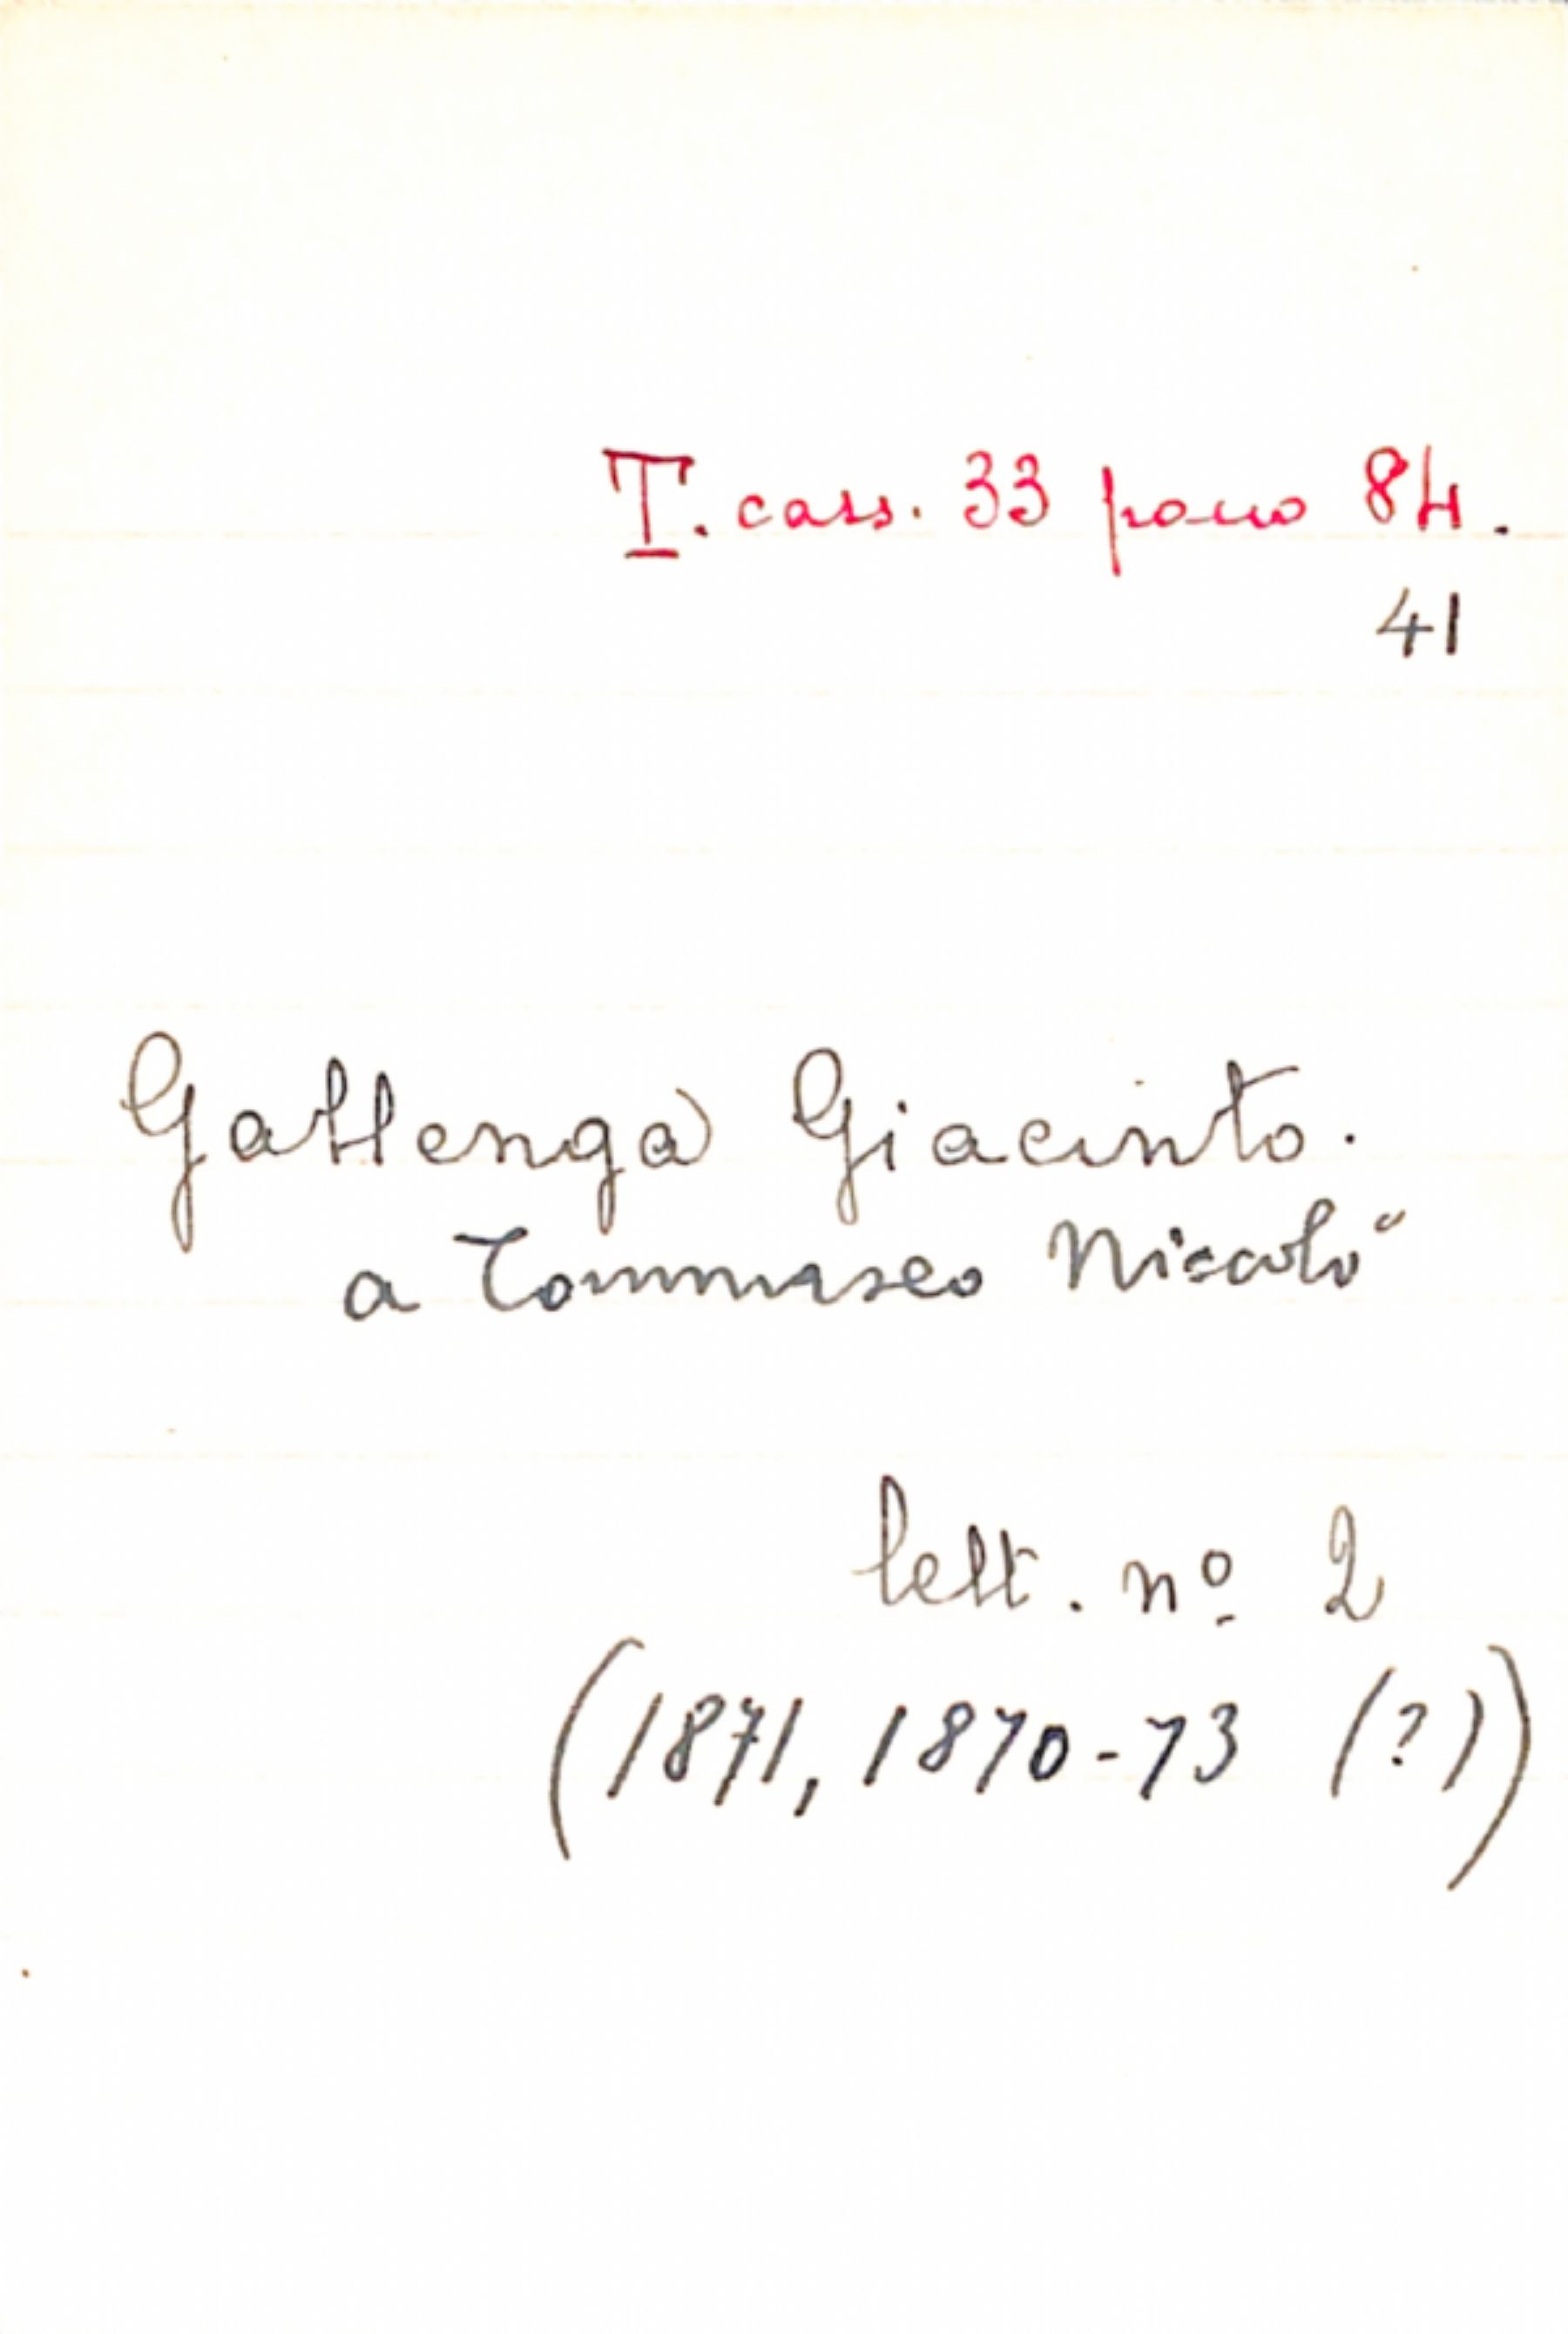 T. cass. 33 panno 84.
41
Gallenga Giacinto.
a Tommaseo Niccolò
lett. nº 2
(1871, 1870-73 (?))